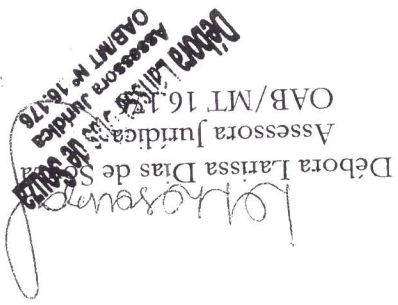 Débora Larissa Dias de
Assessora Jurídica
OAB/MT 16.176
Débora Larissa Dias de Souza
Assessora Jurídica
OAB/MT Nº 16.176